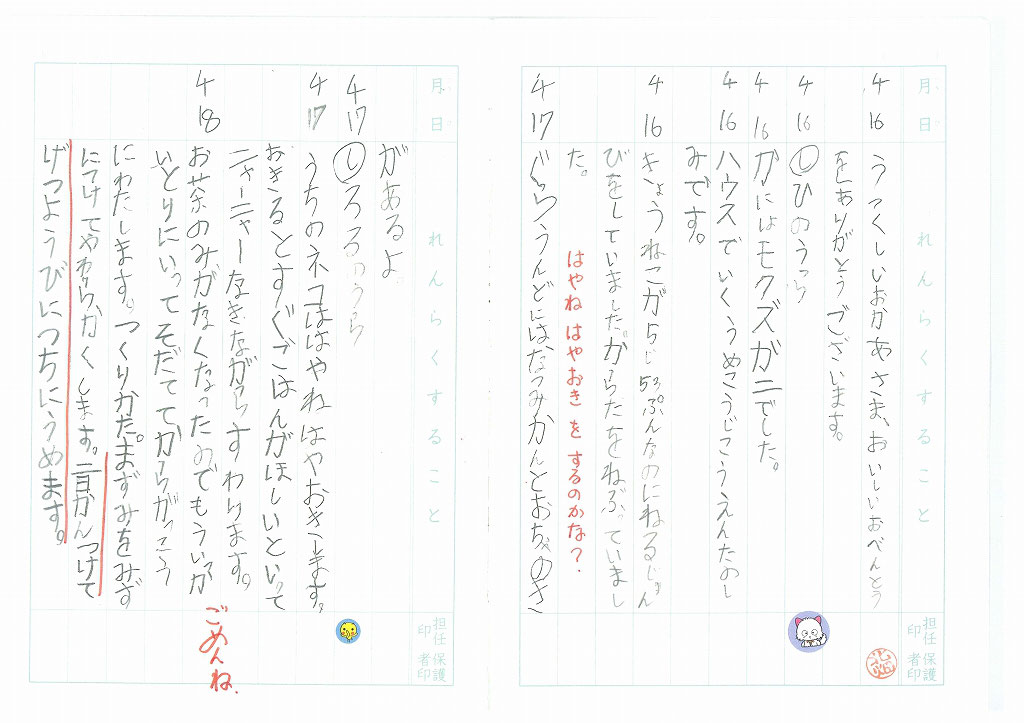 月 日 れんらくすること 担任印 保護者印
4 16 うつくしいおかあさま、おいしいおべんとう
をありがとうございます。
4 16 し ひのうち
4 16 ガにはモクズガニでした。
4 16 ハウスでいくうめこうじこうえんたのし
みです。
4 16 きょうねこが5じ53ぷんなのにねるじゅん
びをしていました。からだをねぶっていまし
た。
はやね はやおき を するのかな?
4 17 ぐらうんどにはなつみかんとおちゃのき
月 日 れんらくすること 担任印 保護者印
があるよ。
4 17 し ろろのうち
4 17 うちのネコははやねはやおきします。
おきるとすぐごはんがほしいといって
ニャーニャーなきながらすわります。
4 18 お茶のみがなくなったのでもういっか
いとりにいってそだててからがっこう
にわたします。つくりかた。まずみをみず
につけてやわらかくします。二日かんつけて
げつようびにつちにうめます。
ごめんね。